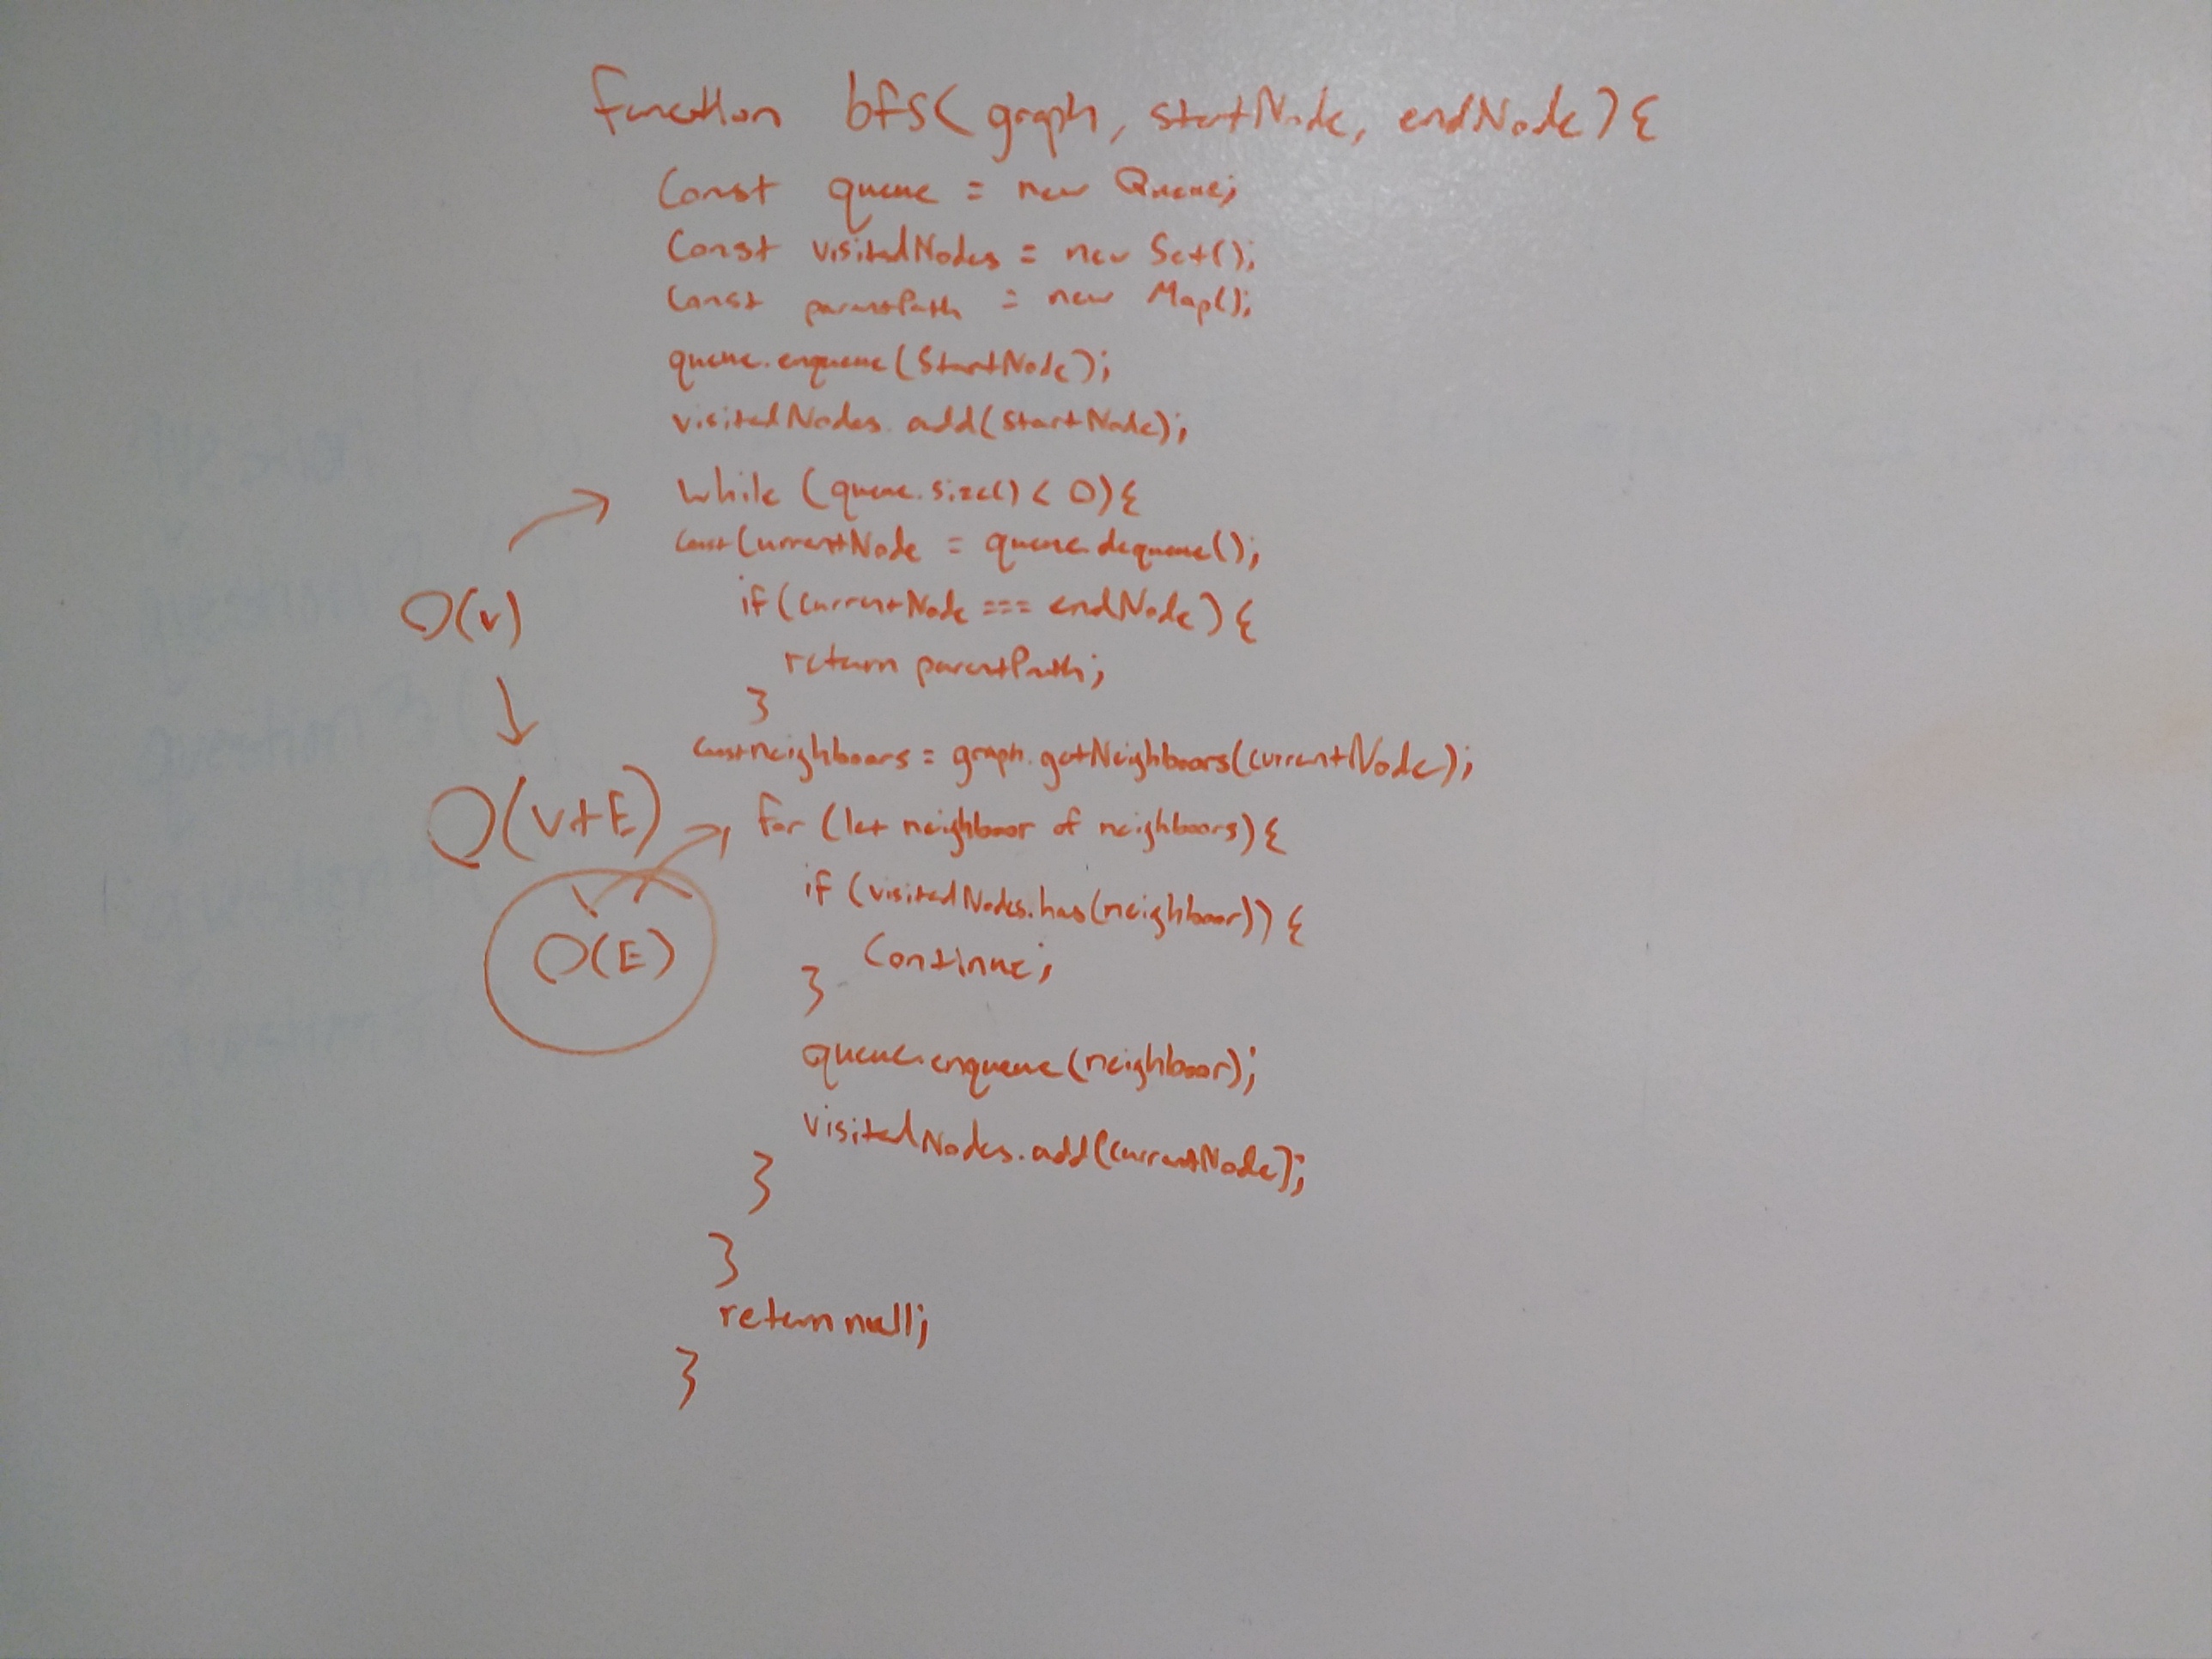 function bfs(graph, startNode, endNode){
const queue = new Queue;
const visitedNodes = new Set();
const parentPath = new Map();
queue.enqueue(StartNode);
visitedNodes.add(startNode);
while (queue.size() < 0){
const currentNode = queue.dequeue();
O(v)
if(currentNode === endNode){
return parentPath;
}
const neighboors = graph.getNeighboors(currentNode);
O(v+E)
for (let neighboor of neighboors){
if (visitedNodes.has(neighboor)){
O(E)
continue;
}
queue.enqueue(neighboor);
visitedNodes.add(currentNode);
}
}
return null;
}